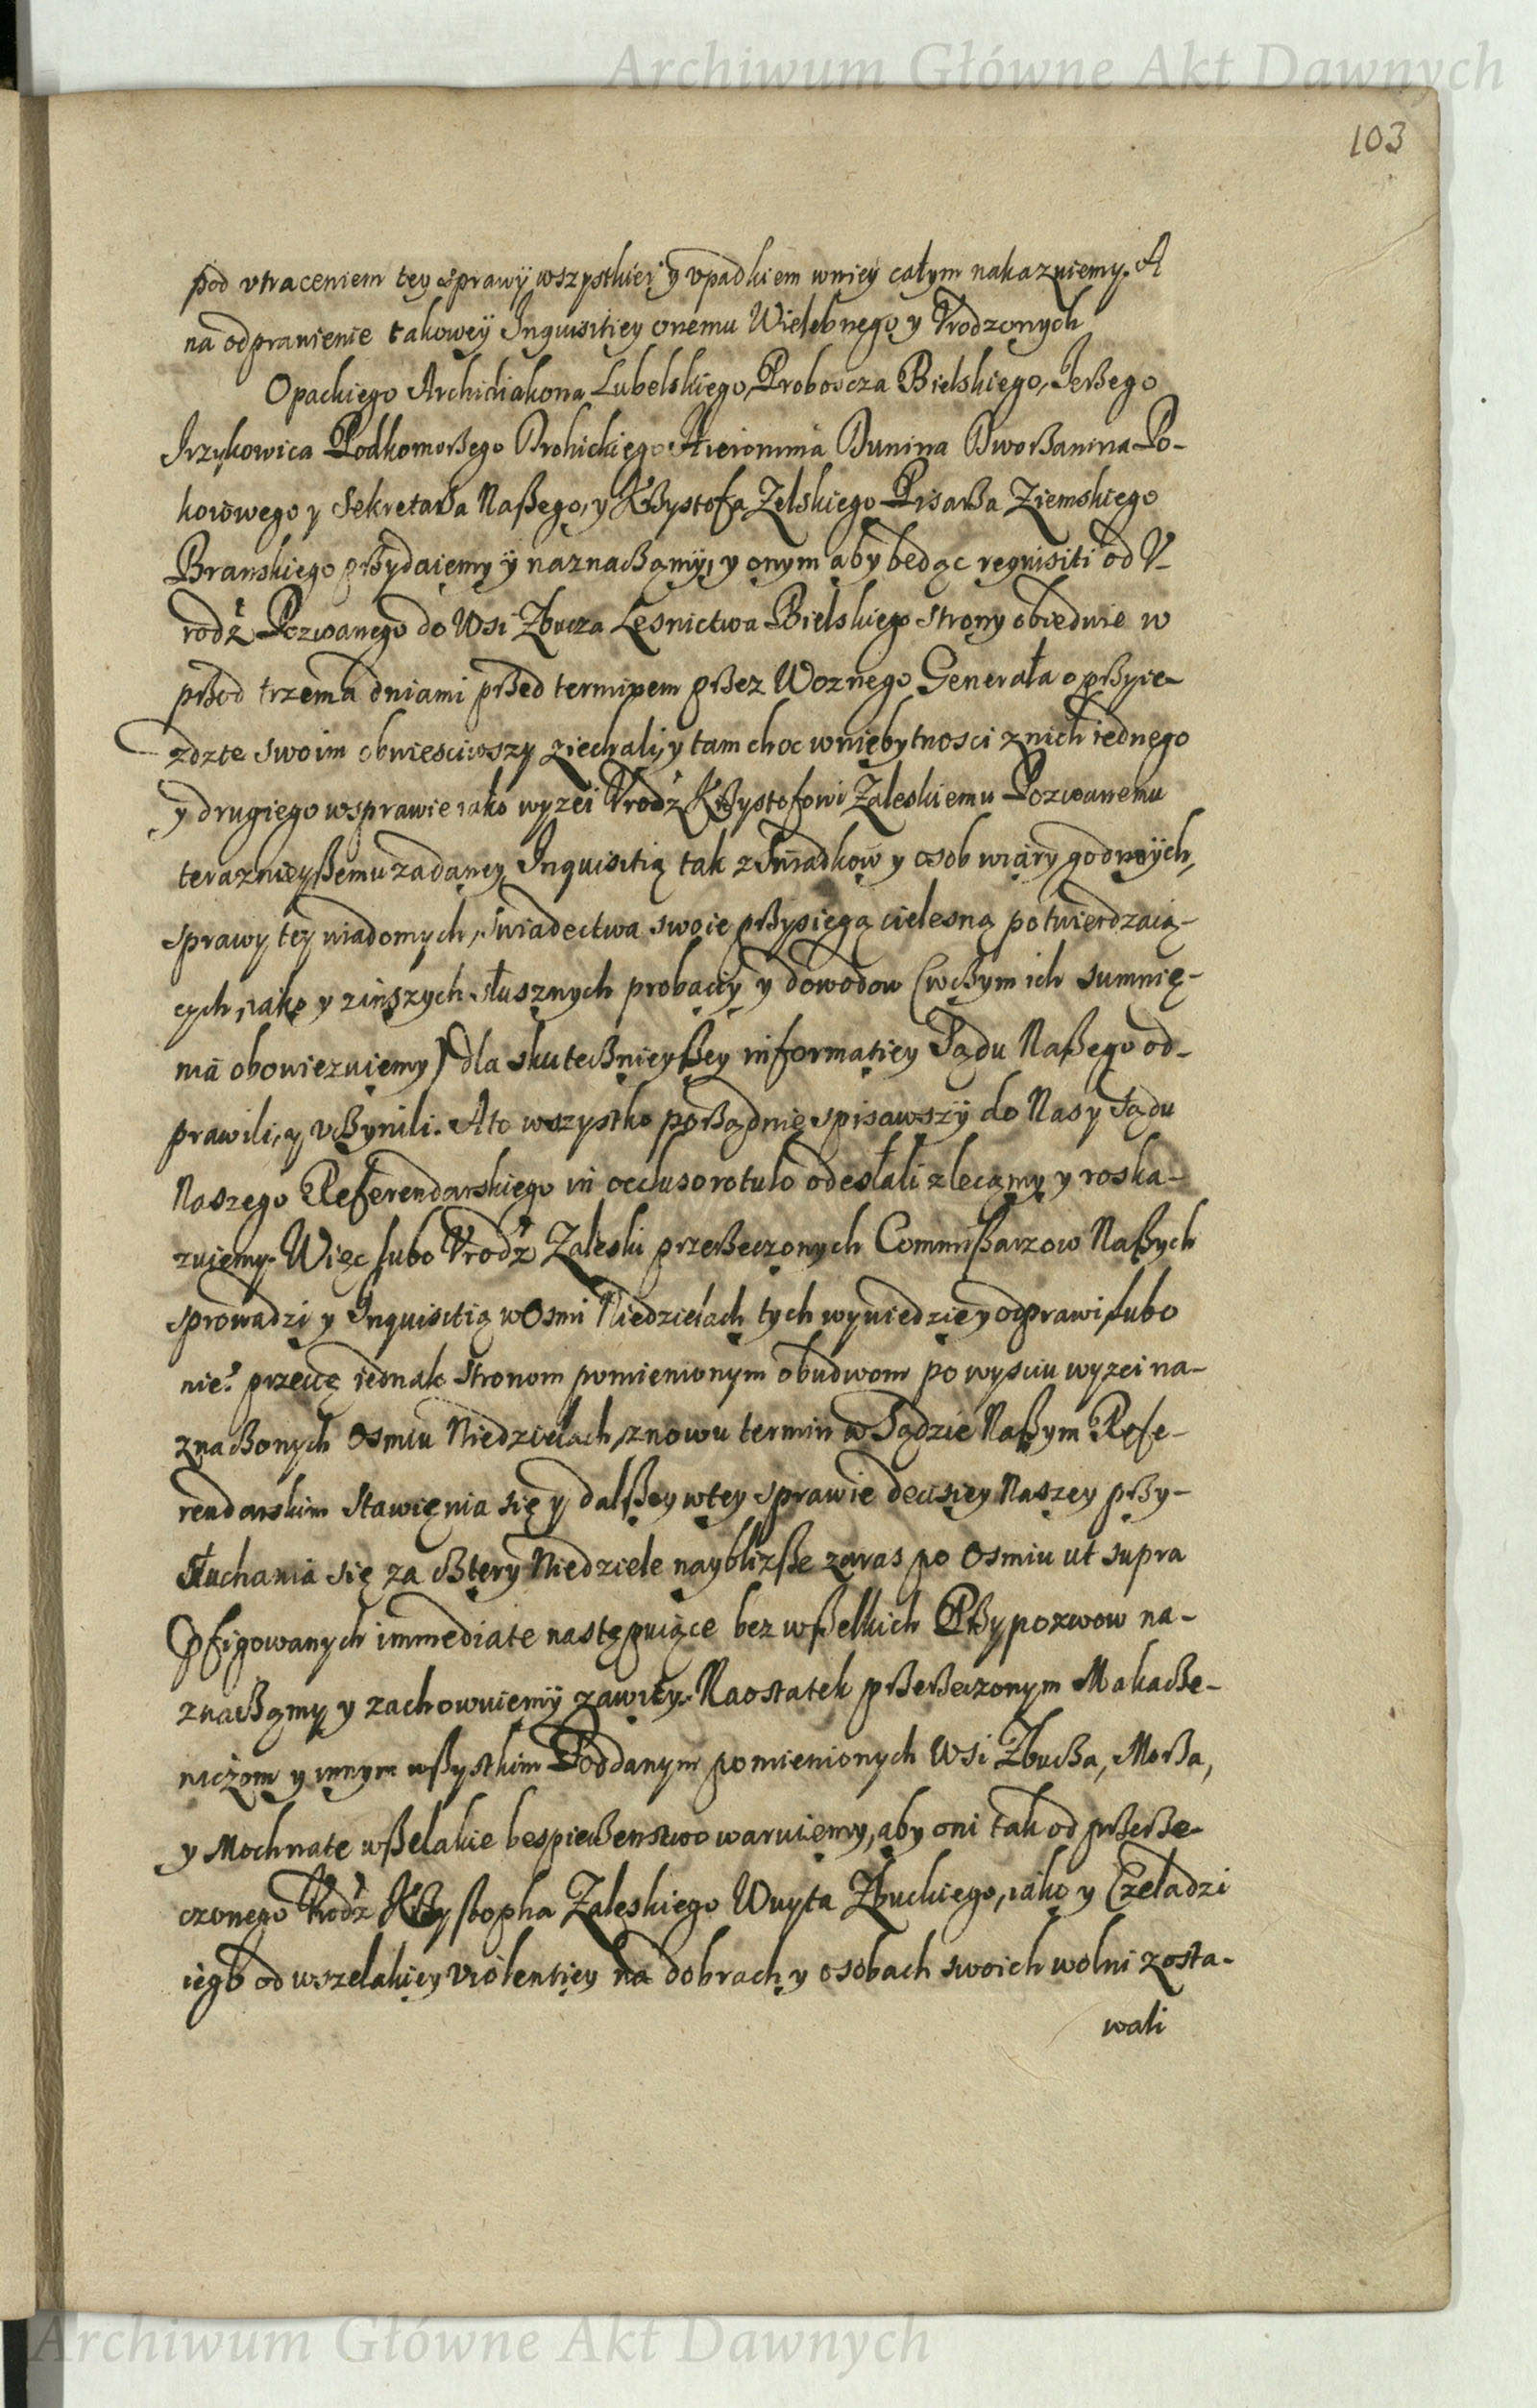 Archiwum Główne Akt Dawnych
103
pod vtraceniem tey sprawy wszystkiei y vpadkiem wniey całym nakazuiemy. A
na odprawienie takowey Inquisitiey onemu Wielebnego y Vrodzonych
Opackiego Archidiakona Lubelskiego, Proboscza Bielskiego, Jerßego
Irzykowica Podkomorßego Drohickiego Hieronima Dunina Dworßanina Po-
koiowego y Sekretarßa Naßego, y Krßystofa Zelskiego Pisarßa Ziemskiego
Branskiego prßydaiemy y naznaczamy, y onym aby będąc requisiti od V-
rodz Pozwanego do Wsi Zbucza Lesnictwa Bielskiego strony obiedwie w
przod trzema dniami przed terminem przez Woznego Generała o przyie-
zdzie swoim obwiesciwszy ziechali, y tam choc wniebytnosci znich iednego
y drugiego wsprawie iako wyzei Vrodz Krßystofowi Zaleskiemu Pozwanemu
teraznieyßemu zadaney, Inquisitią tak z Swiadkow y osob wiary godnych,
sprawy tey wiadomych, swiadectwa swoie przysięgą cielesną potwierdzaią-
cych, iako y zinszych słusznych probaciy y dowodow (wczym ich sumnie-
nia obowiezuiemy) dla skutecznieyßey informatiey Sądu Naßego od-
prawili, y vczynili. A to wszystko porządnie spisawszy do Nas y Sądu
Naszego Referendarskiego in occluso rotulo odesłali zlecamy y roska-
zuiemy. Więc lubo Vrodz Zaleski przerzeczonych Commißarzow Naßych
sprowadzi y Inquisitią w Osmi Niedzielach tych wywiedzie y odprawi, lubo
nie? przecię iednak stronom pomienionym obudwom po wysciu wyzei na-
znaczonych Osmiu Niedzielach, znowu termin w Sądzie Naßym Refe-
rendarskim stawienia się y dalßey wtey sprawie decisiey Naszey przy-
słuchania się za cztery Niedziele naybliżße zaras po Osmiu ut supra
Prefigowanych immediate następuiące bez wßelkich Przypozwow na-
znaczamy y zachowuiemy zawity. Naostatek przerzeczonym Makacze-
niczom y innym wßystkim Poddanym pomienionych Wsi Zbucza, Morßa,
y Mochnate wßelakie bespieczenstwo waruiemy, aby oni tak od przerze-
czonego Vrodz Krzysztopha Zaleskiego Wuyta Zbuckiego, iako y Czeladzi
iego od wszelakiey violentiey na dobrach y osobach swoich wolni zosta-
wali
Archiwum Główne Akt Dawnych